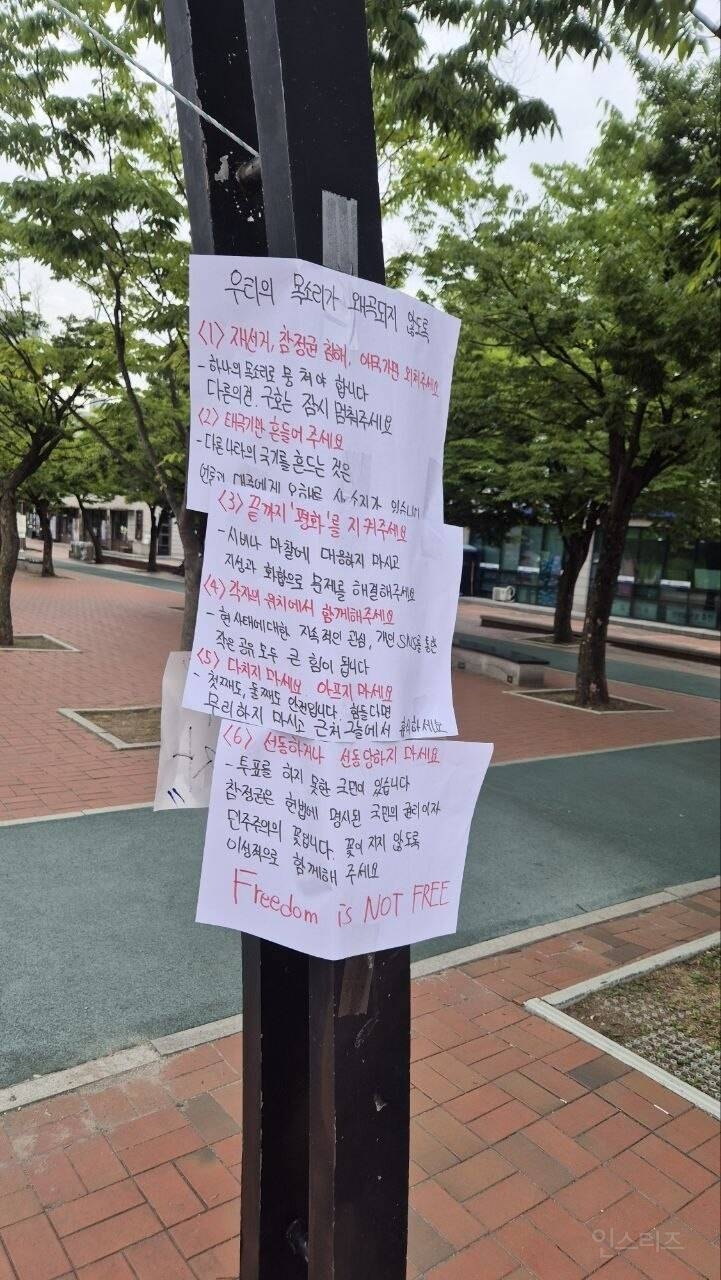 우리의 목소리가 왜곡되지 않도록
<1> 재선거, 참정권 침해, 애국가만 외쳐주세요
- 하나의 목소리로 뭉쳐야 합니다
다른의견. 구호는 잠시 멈춰주세요
<2> 태극기만 흔들어 주세요
- 다른나라의 국기를 흔드는 것은
오해로 수가 있습니다
<3> 끝까지 '평화'를 지켜주세요
- 시비나 마찰에 대응하지 마시고
지성과 화합으로 문제를 해결해주세요
<4> 각자의 위치에서 함께해주세요
- 현 사태에대한 지속적인 관심, 개인 SNS을 통한
작은 공유 모두 큰 힘이 됩니다
<5> 다치지 마세요 아프지 마세요
- 첫째도, 둘째도 안전입니다. 힘들다면
무리하지 마시고 근처 그늘에서 휴식하세요
<6> 선동하거나 선동당하지 마세요
- 투표를 하지 못한 국민이 있습니다
참정권은 헌법에 명시된 국민의 권리이자
민주주의의 꽃입니다. 꽃이 지지 않도록
이성적으로 함께해 주세요
Freedom is NOT FREE
인스티즈